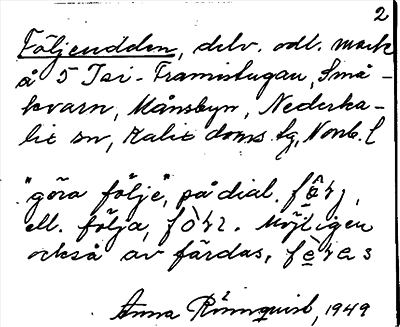 2
Följeudden, delv. odl. mark
å 5 Isi-Framistugan, Små-
kvarn, Månsbyn, Nederka-
lix sn, Kalix doms. tg, Norrb. l
"göra följe", på dial.
ell. följa, Möjligen
också av färdas,
Anna Rönnquist, 1949